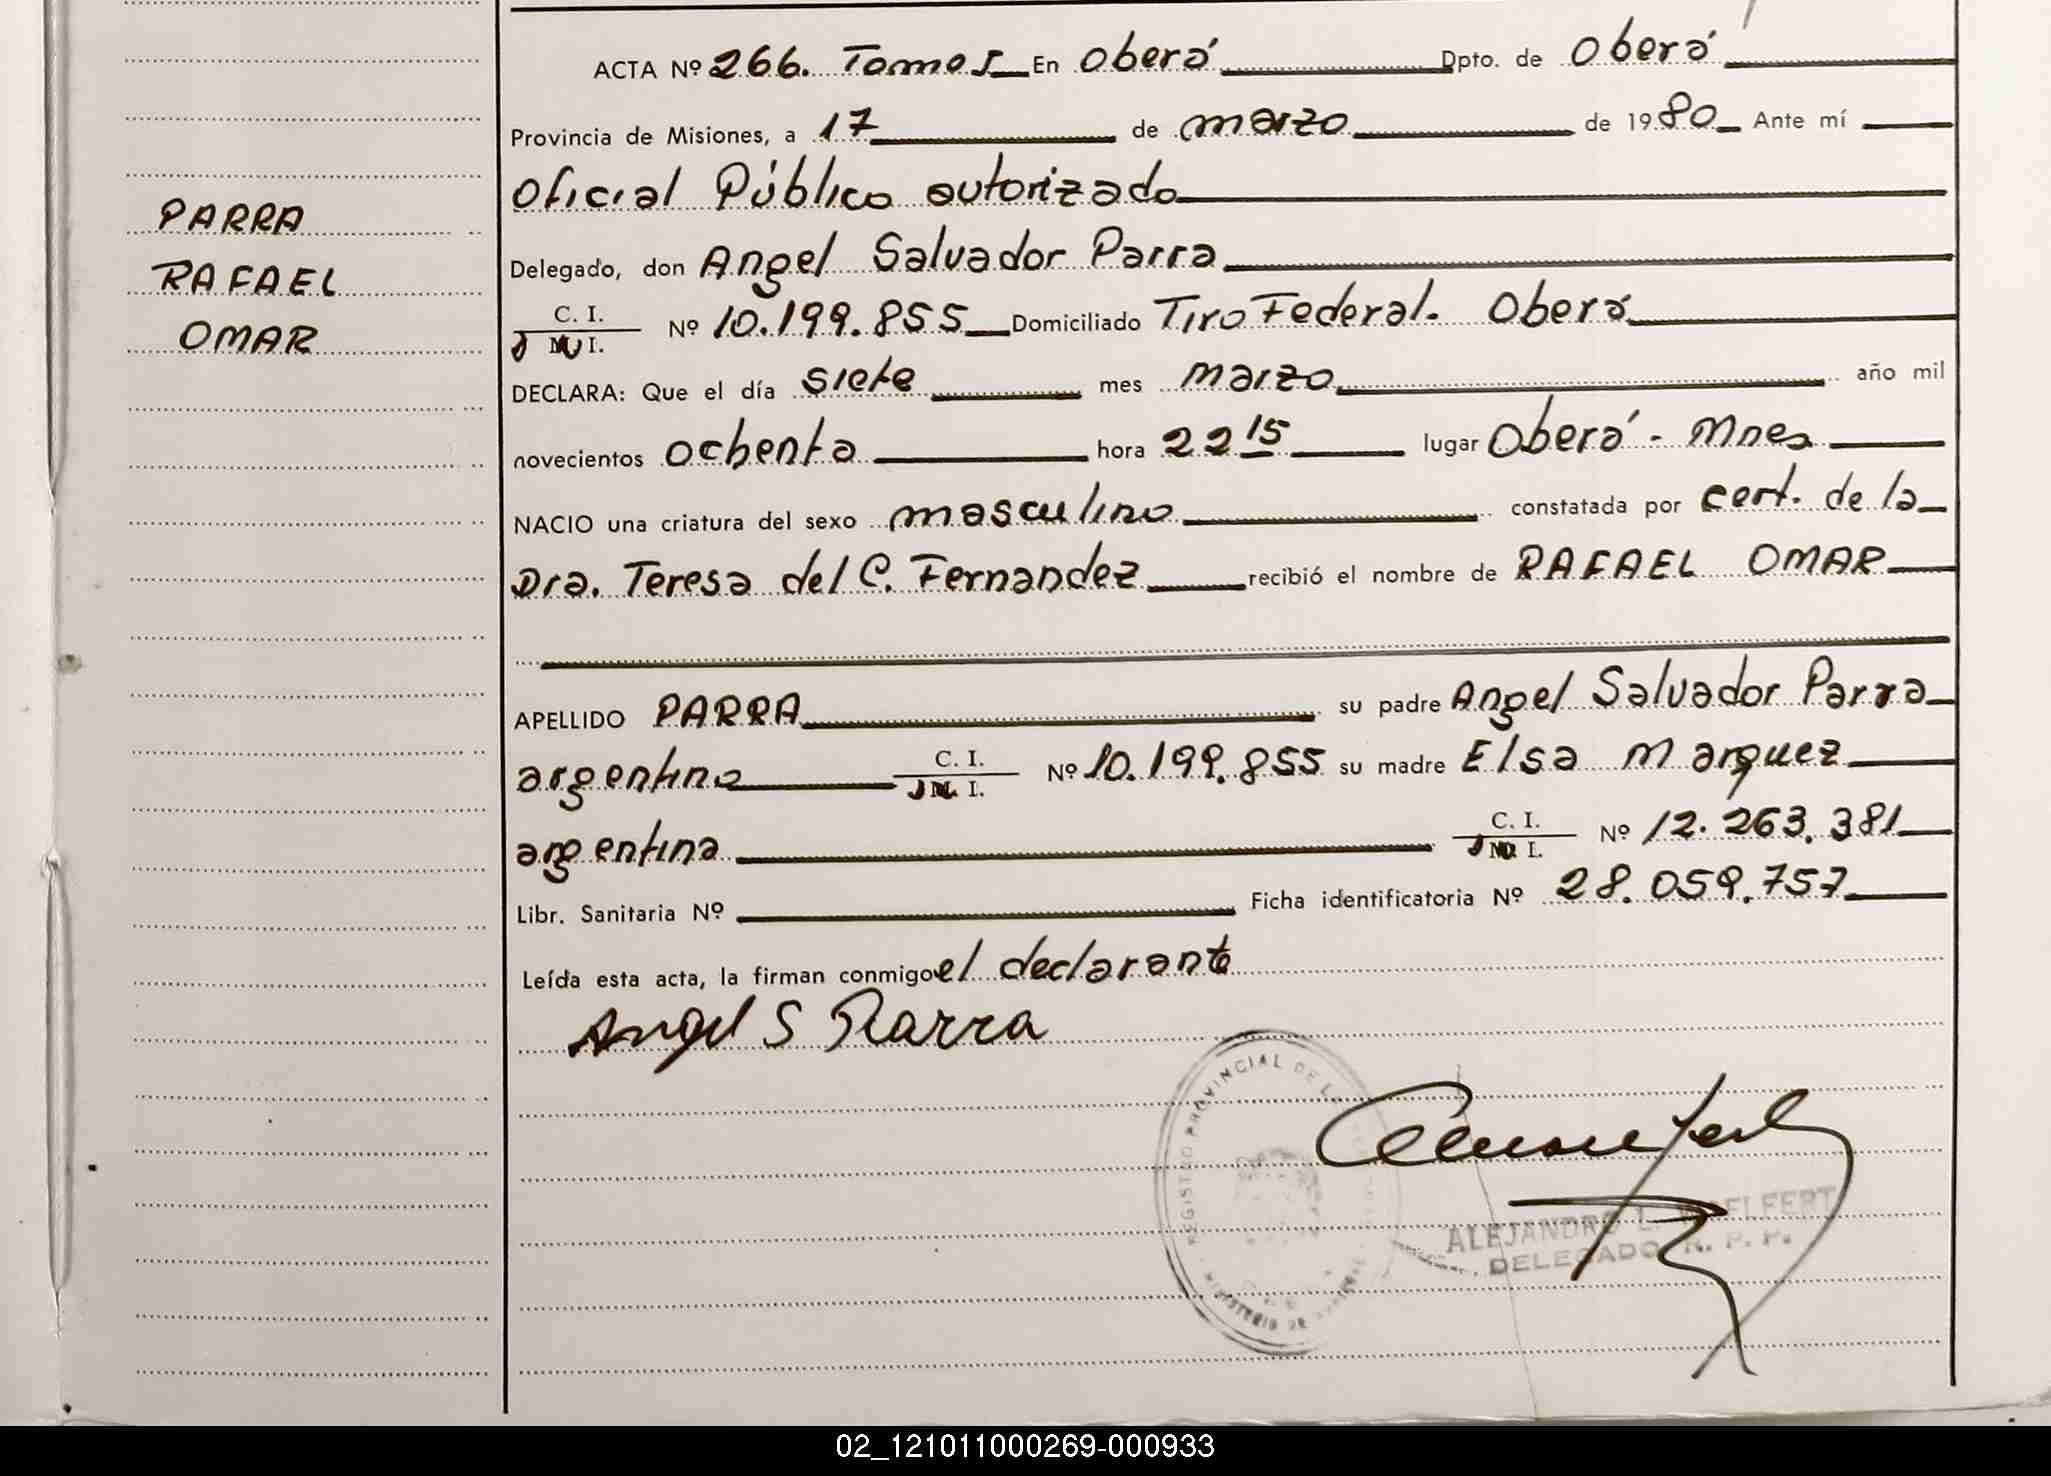 PARRA
RAFAEL
OMAR
ACTA Nº 266. Tomo I En Oberá Dpto. de Oberá
Provincia de Misiones, a 17 de marzo de 1980 Ante mí
Oficial Público autorizado
Delegado, don Angel Salvador Parra
C. I.
Nº 10.199.855 Domiciliado Tiro Federal. Oberá
M. I.
DECLARA: Que el día siete mes marzo año mil
novecientos ochenta hora 22 15 lugar Oberá - Mnes
NACIO una criatura del sexo masculino constatada por cert. de la
Dra. Teresa del C. Fernandez recibió el nombre de RAFAEL OMAR
APELLIDO PARRA su padre Angel Salvador Parra
argentino C. I. Nº 10.199.855 su madre Elsa Marquez
M. I.
argentina C. I. Nº 12.263.381
M. I.
Libr. Sanitaria Nº Ficha identificatoria Nº 28.059.757
Leída esta acta, la firman conmigo el declarante
Angel S Parra
REGISTRO PROVINCIAL DE
MINISTERIO DE
ALEJANDRO L.
DELEGADO R. P. P.
02_121011000269-000933